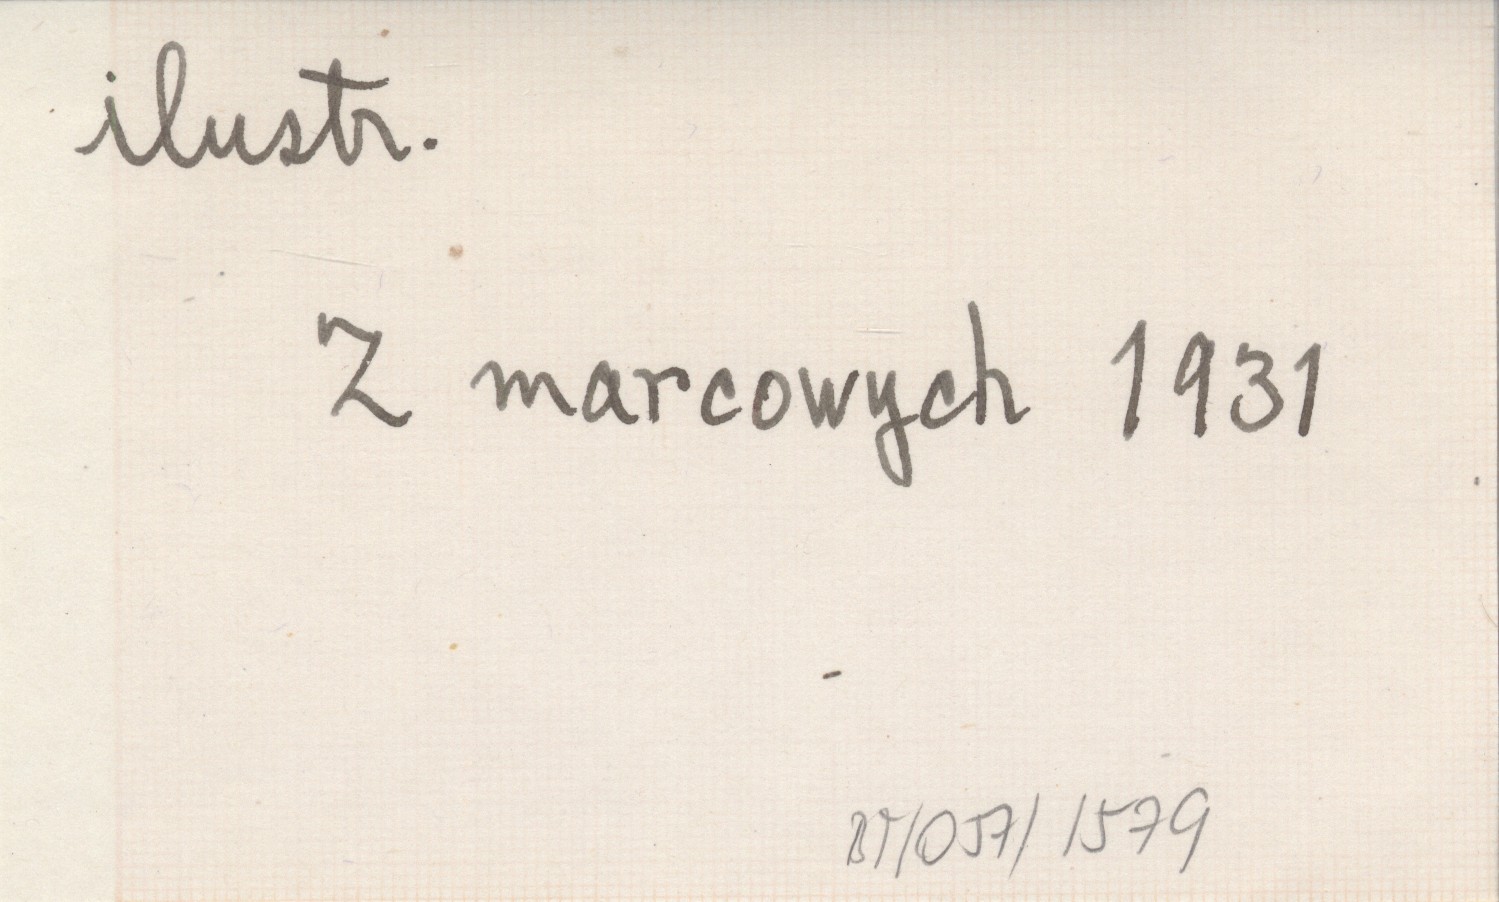 ilustr.
Z marcowych 1931
BT/057/1579